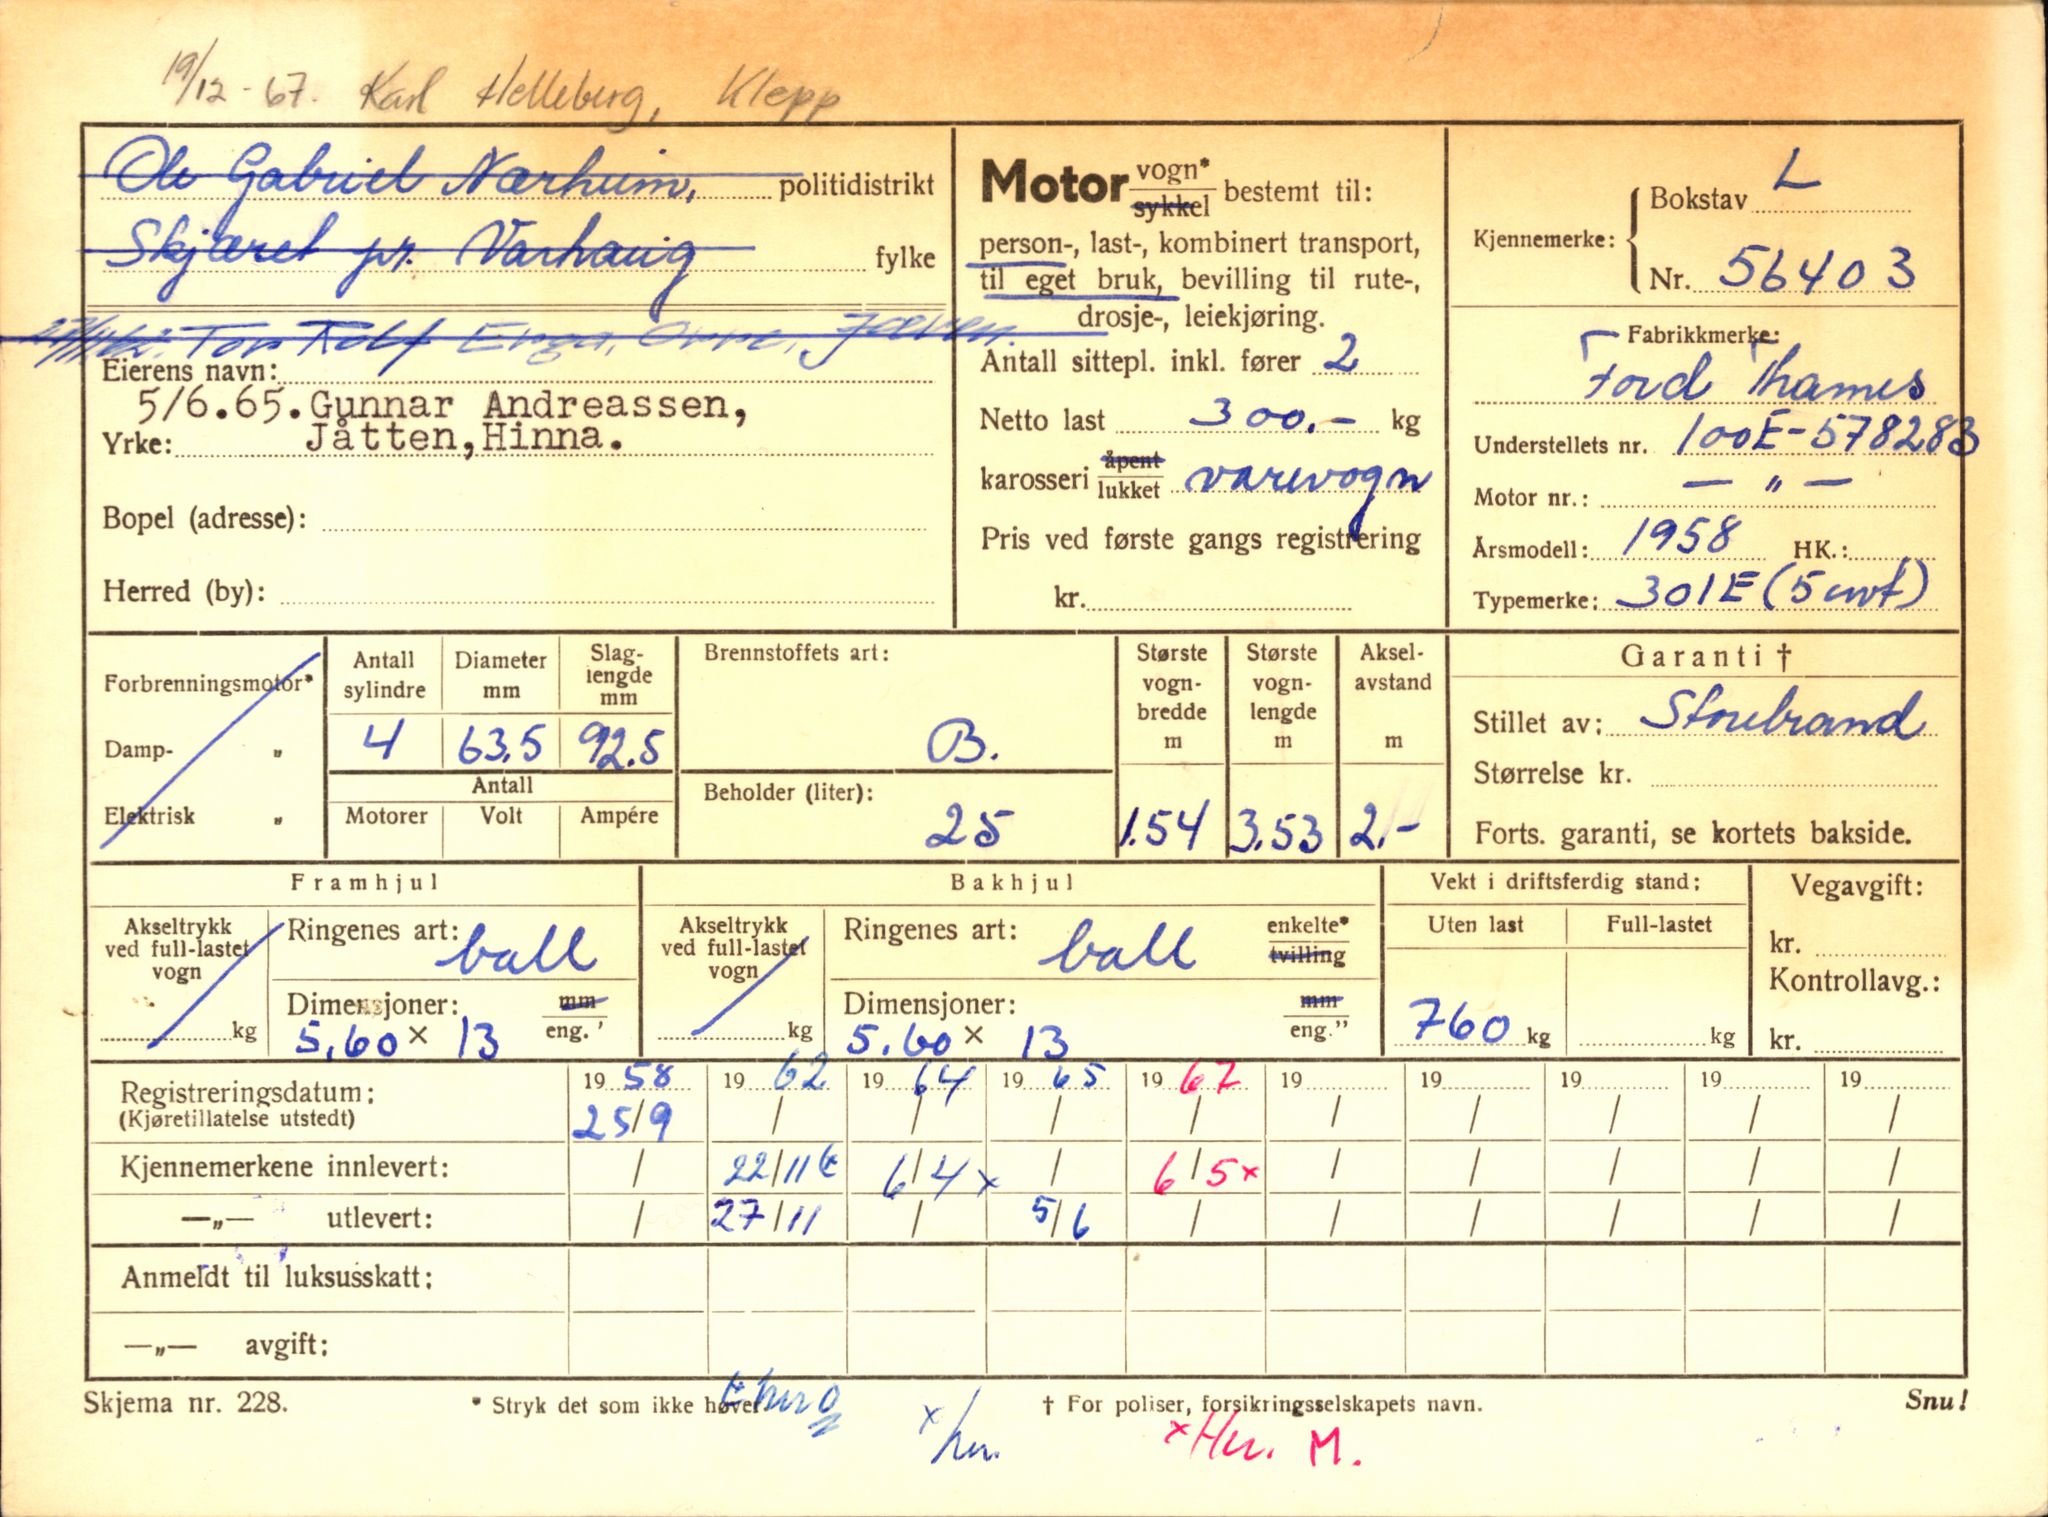 19/12-67. Karl Helleberg, Klepp
Ole Gabriel Nærheim, politidistrikt
Skjæret pr. Varhaug fylke
27/11-62. Tor Rolf Enga, Orre, Jæren.
Eierens navn:
5/6.65. Gunnar Andreassen,
Yrke: Jåtten, Hinna.
Bopel (adresse):
Herred (by):
Motor vogn* sykkel bestemt til:
person-, last-, kombinert transport,
til eget bruk, bevilling til rute-,
drosje-, leiekjøring.
Antall sittepl. inkl. fører 2
Netto last 300.- kg
karosseri åpent lukket varevogn
Pris ved første gangs registrering
kr.
Kjennemerke: Bokstav L
Nr. 56403
Fabrikkmerke:
Ford Thames
Understellets nr. 100E-578283
Motor nr.: — " —
Årsmodell: 1958 HK.:
Typemerke: 301E (5 cwt)
Forbrenningsmotor*
Damp- „
Elektrisk „
Antall sylindre Diameter mm Slaglengde mm
4 63.5 92.5
Antall
Motorer Volt Ampére
Brennstoffets art:
B.
Beholder (liter):
25
Største vognbredde m Største vognlengde m Akselavstand m
1.54 3.53 2.-
Garanti †
Stillet av: Storebrand
Størrelse kr.
Forts. garanti, se kortets bakside.
Framhjul
Akseltrykk ved full-lastet vogn kg
Ringenes art: ball
Dimensjoner: mm eng. '
5.60 x 13
Bakhjul
Akseltrykk ved full-lastet vogn kg
Ringenes art: ball enkelte* tvilling
Dimensjoner: mm eng."
5.60 x 13
Vekt i driftsferdig stand:
Uten last Full-lastet
760 kg kg
Vegavgift:
kr.
Kontrollavg.:
kr.
Registreringsdatum: 1958 1962 1964 1965 1967 19 19 19 19 19
(Kjøretillatelse utstedt) 25/9 / / / / / / / / /
Kjennemerkene innlevert: / 22/11 6/4 x / 6/5 x / / / / /
—„— utlevert: / 27/11 / 5/6 / / / / / /
Anmeldt til luksusskatt:
—„— avgift:
Skjema nr. 228. * Stryk det som ikke høver † For poliser, forsikringsselskapets navn. Snu!
x Her. M.